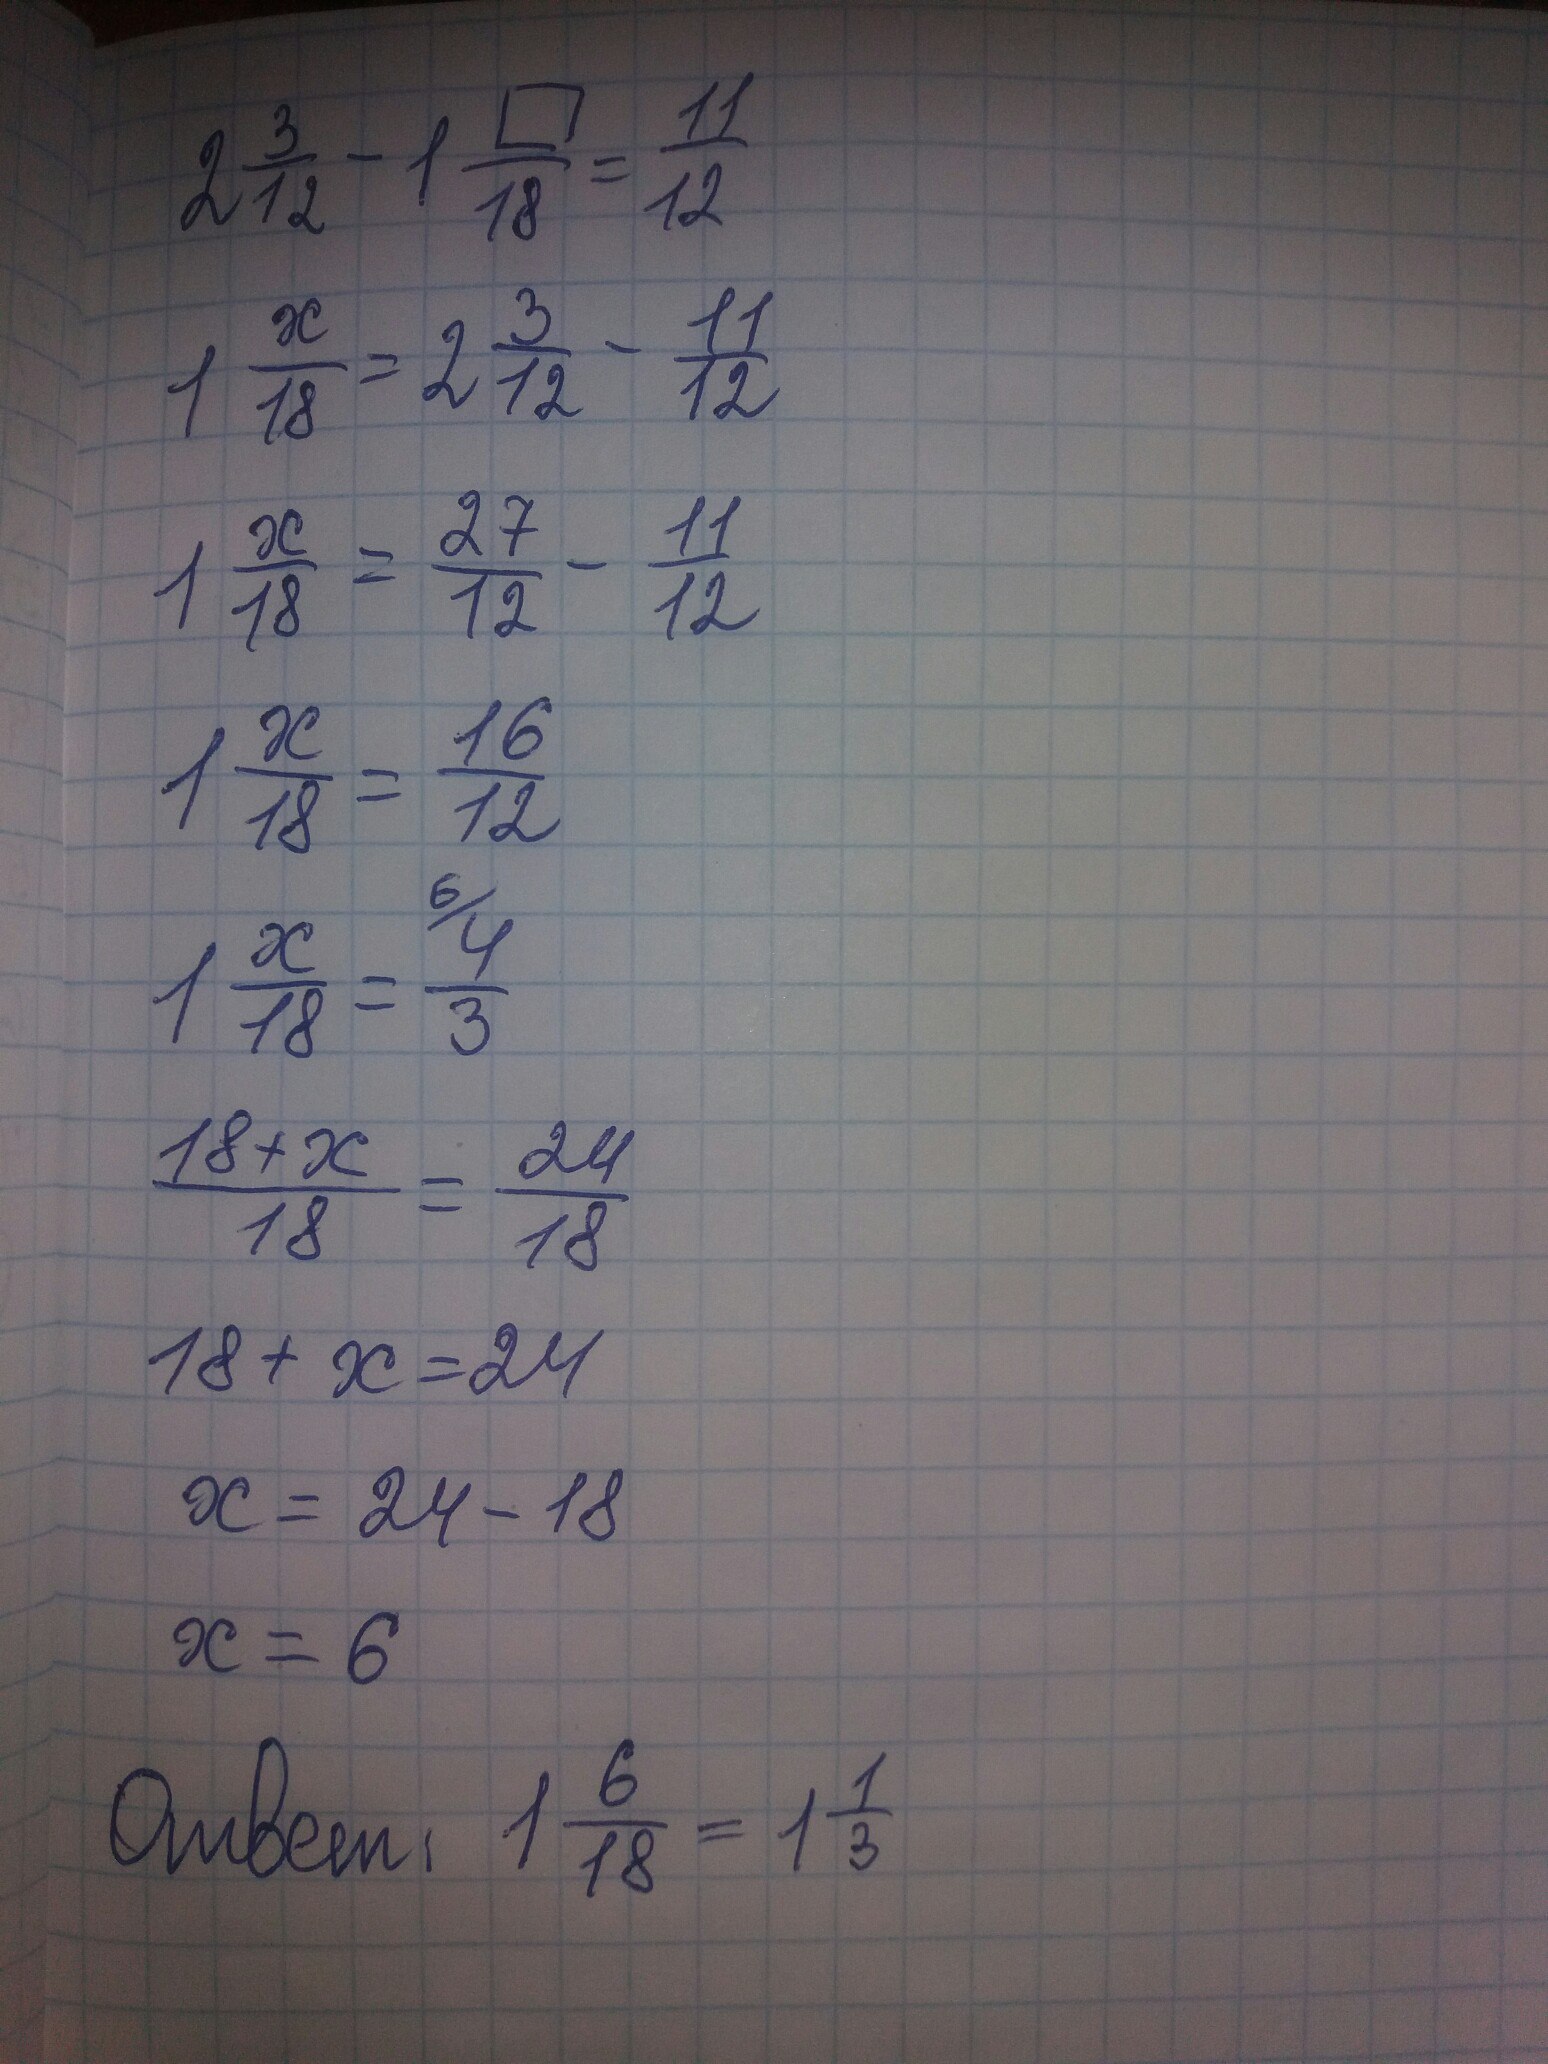 2 3/12 - 1 □/18 = 11/12
1 x/18 = 2 3/12 - 11/12
1 x/18 = 27/12 - 11/12
1 x/18 = 16/12
1 x/18 = 6/ 4/3
18+x/18 = 24/18
18 + x = 24
x = 24 - 18
x = 6
Ответ: 1 6/18 = 1 1/3